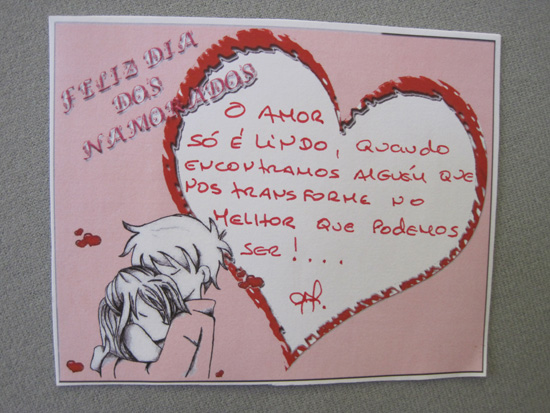 FELIZ DIA
DOS
NAMORADOS
O AMOR
SÓ É LINDO, QUANDO
ENCONTRAMOS ALGUÉM QUE
NOS TRANSFORME NO
MELHOR QUE PODEMOS
SER!....